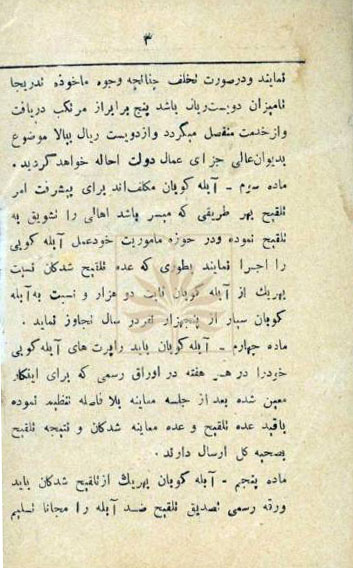 ۳
نمایند ودرصورت تخلف چنانچه وجوه ماخوذه تدریجا
تامیزان دویست ریال باشد پنج برابراز مرتکب دریافت
وازخدمت منفصل میگردد وازدویست ریال ببالا موضوع
بدیوانعالی جزای عمال دولت احاله خواهدگردید.
ماده سوم - آبله کوبان مکلف‌اند برای پیشرفت امر
تلقیح بهر طریقی که میسر باشد اهالی را تشویق به
تلقیح نموده ودر حوزه ماموریت خودعمل آبله کوبی
را اجرا نمایند بطوری که عده تلقیح شدگان نسبت
بهریك از آبله کوبان ثابت دو هزار و نسبت به آبله
کوبان سیار از پنجهزار نفردر سال تجاوز نماید .
ماده چهارم - آبله کوبان باید راپرت های آبله کوبی
خودرا در هر هفته در اوراق رسمی که برای اینکار
معین شده بعد از جلسه معاینه بلا فاصله تنظیم نموده
باقید عده تلقیح و عده معاینه شدگان و نتیجه تلقیح
بصحیه کل ارسال دارند.
ماده پنجم - آبله کوبان بهریك ازتلقیح شدگان باید
ورقه رسمی تصدیق تلقیح ضد آبله را مجانا تسلیم